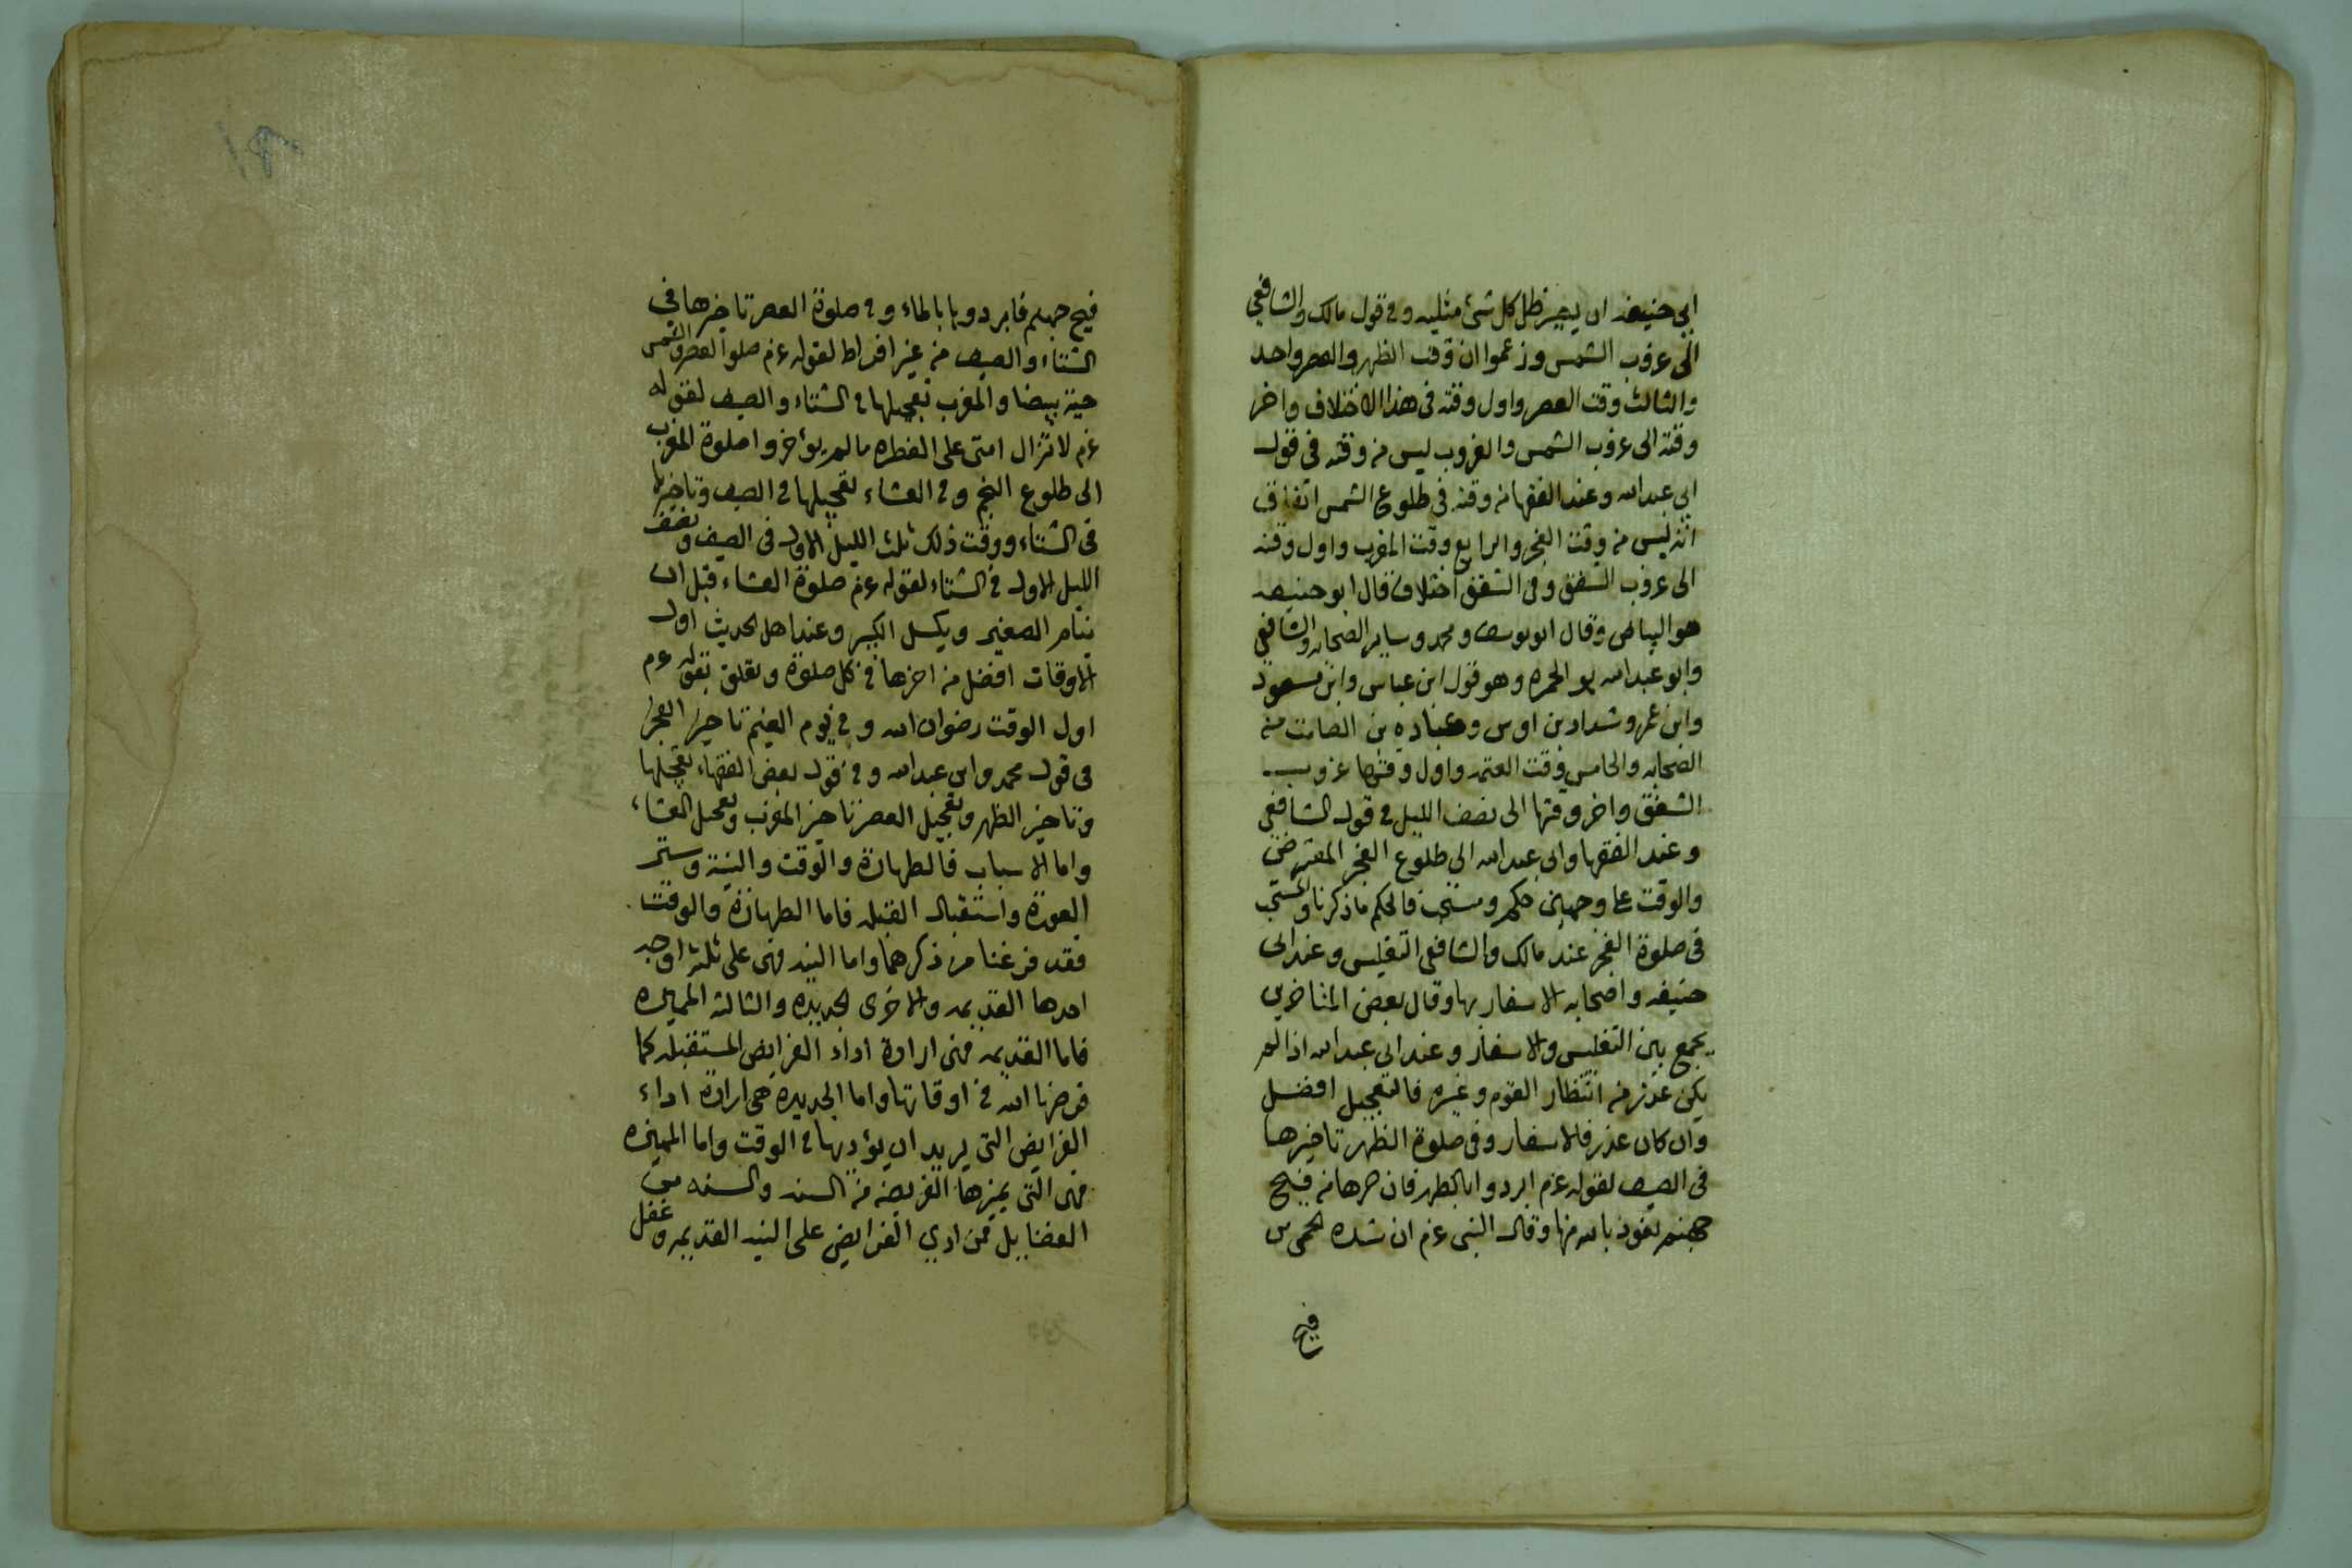 ابى حنيفه ان يصير ظل كل شئ مثليه وفى قول مالك والشافعي
الى غروب الشمس وزعموا ان وقت الظهر والعصر واحد
والثالث وقت العصر واول وقته فى هذا الاختلاف واخر
وقته الى غروب الشمس والغروب ليس من وقته فى قول
ابى عبدالله وعند الفقها من وقته فى طلوع الشمس اتفاق
انه ليس من وقت الفجر والرابع وقت المغرب واول وقته
الى غروب الشفق وفى الشفق اختلاف قال ابو حنيفه
هو البياض وقال ابو يوسف ومحمد وساير الصحابه والشافعي
وابو عبدالله هو الحمره وهو قول ابن عباس وابن مسعود
وابن عمر وشداد بن اوس وعباده بن الصامت من
الصحابه والخامس وقت العتمه واول وقتها غروب
الشفق واخر وقتها الى نصف الليل فى قول الشافعي
وعند الفقها وابى عبدالله الى طلوع الفجر المعترض
والوقت على وجهين حكم ومستحب فالحكم ما ذكرنا والمستحب
فى صلوة الفجر عند مالك والشافعى التغليس وعند ابى
حنيفه واصحابه الاسفار بها وقال بعض المتاخرين
يجمع بين التغليس والاسفار وعند ابى عبدالله اذا لم
يكن عذر من انتظار القوم وغيره فالتعجيل افضل
وان كان عذر فالاسفار وفى صلوة الظهر تاخيرها
فى الصيف لقوله عم ابردوا بالظهر فان حرها من فيح
جهنم نعوذ بالله منها وقال النبى عم ان شده الحر من
فيح
فيح جهنم فابردوها بالماء وفى صلوة العصر تاخيرها فى
الشتاء والصيف من غير افراط لقوله عم صلوا العصر والشمس
حية بيضا والمغرب تعجيلها فى الشتاء والصيف لقوله
عم لا تزال امتى على الفطره ما لم يؤخروا صلوة المغرب
الى طلوع النجم وفى العشاء تعجيلها فى الصيف وتاخيرها
فى الشتاء ووقت ذلك ثلث الليل الاول فى الصيف ونصف
الليل الاول فى الشتاء لقوله عم صلوة العشاء قبل ان
ينام الصغير ويكسل الكبير وعند اهل الحديث اول
الاوقات افضل من اخرها فى كل صلوة وتعلق بقوله عم
اول الوقت رضوان الله وفى يوم الغيم تاخير الفجر
فى قول محمد وابى عبدالله وفى قول بعض الفقهاء تعجيلها
وتاخير الظهر وتعجيل العصر تاخير المغرب وتعجيل العشاء
واما الاسباب فالطهارة والوقت والنية وستر
العورة واستقبال القبله فاما الطهارة والوقت
فقد فرغنا من ذكرهما واما النيه فهى على ثلثة اوجه
احدها القديمه والاخرى الجديده والثالثه المميزه
فاما القديمه فهى ارادة اداء الفرايض المستقبله كما
فرضها الله فى اوقاتها واما الجديده هى ارادة اداء
الفرايض التى يريد ان يؤديها فى الوقت واما المميزه
فهى التى يميزها الفريضه من السنه والسنه من
الفضايل فمن ادى الفرايض على النيه القديمه وغفل